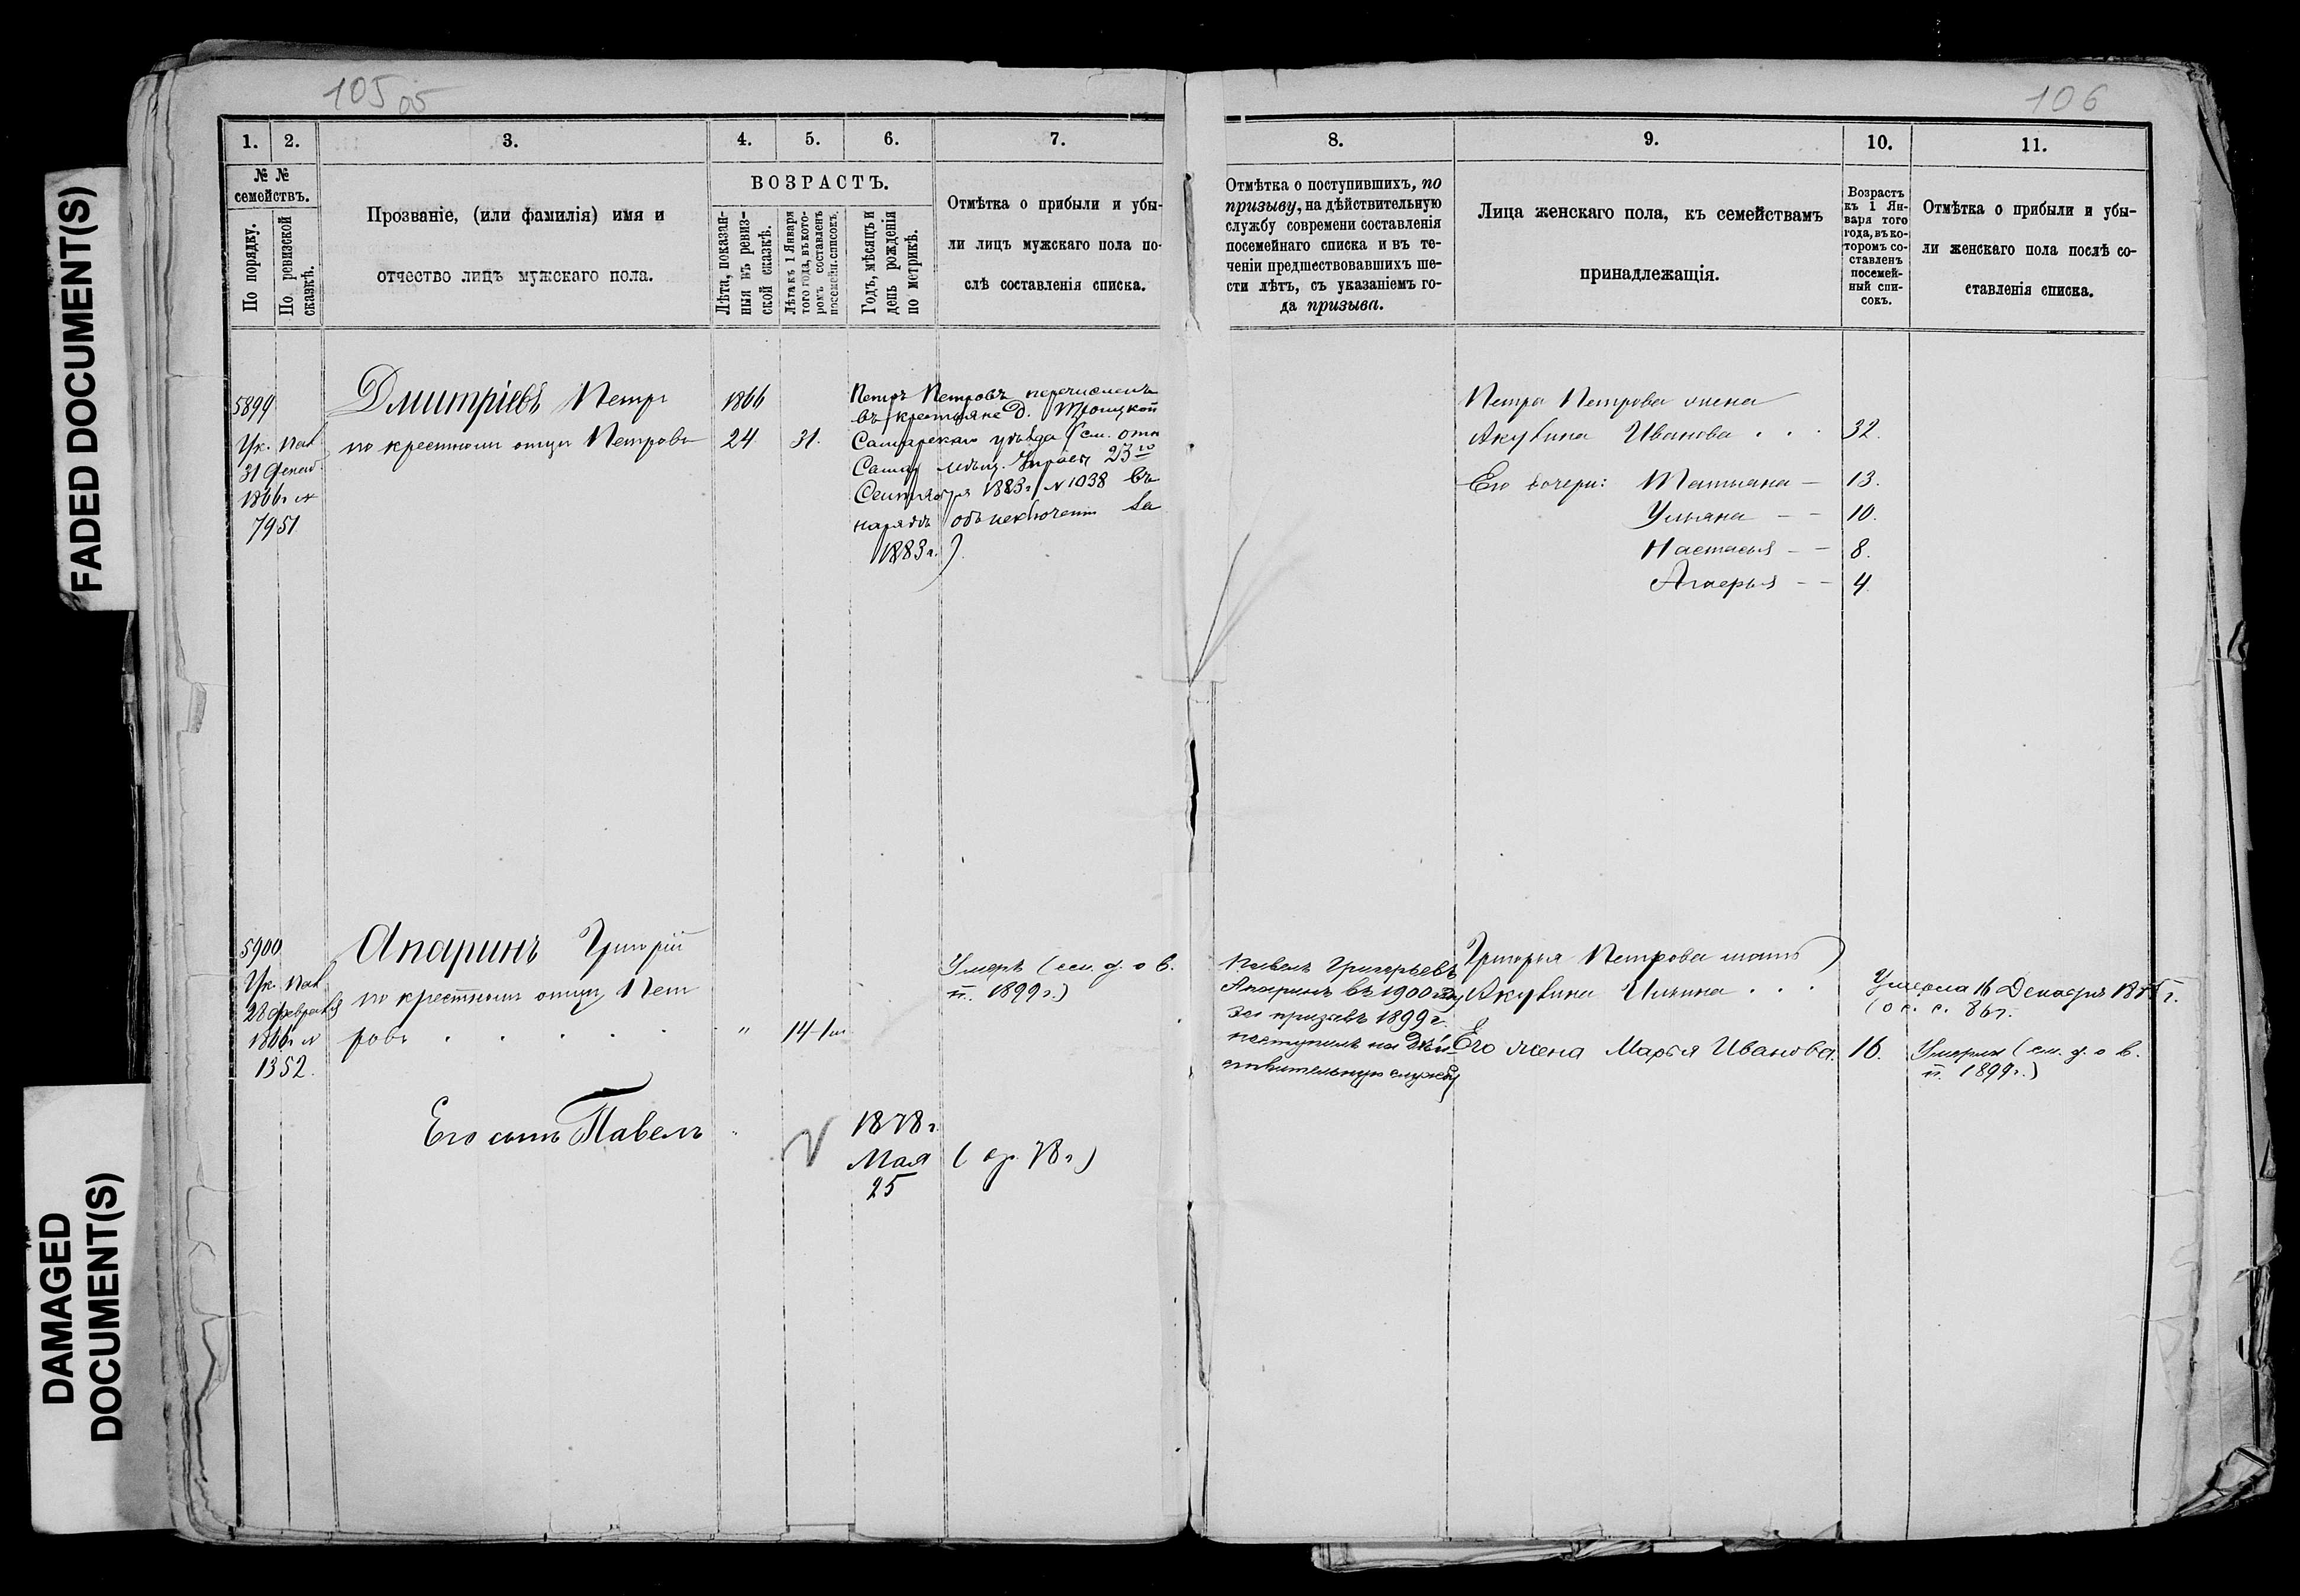 FADED DOCUMENT(S)
DAMAGED
DOCUMENT(S)
105 05
1. 2. 3. 4. 5. 6. 7.
№ №
семействъ.
По порядку.
По ревизской
сказкѣ.
Прозваніе, (или фамилія) имя и
отчество лицъ мужскаго пола.
ВОЗРАСТЪ.
Лѣта, показан-
ныя въ ревиз-
ской сказкѣ.
Лѣта къ 1 Января
того года, въ кото-
ромъ составленъ
посемейн. списокъ.
Годъ, мѣсяцъ и
день рожденія
по метрикѣ.
Отмѣтка о прибыли и убы-
ли лицъ мужскаго пола по-
слѣ составленія списка.
5899
Ук. Пал.
31
1866 г. №
7951
Дмитріевъ Петръ
по крестному отцу Петровъ
1866
24. 31.
Петръ Петровъ перечисленъ
въ крестьяне д. Троицкой
Самарскаго уѣзда (см. отн.
Самар. 23го
Сентября 1883 г. № 1038 въ
нарядѣ объ исключеніи за
1883 г.)
5900
Ук. Пал.
28 февраля
1866 г. №
1352.
Апаринъ Григорій
по крестному отцу Пет
ровъ . . . . . " 14
Умеръ (см. д. о в.
п. 1899 г.)
Его сынъ Павелъ "
1878 г.
Мая
25
(ор. 78 г.)
106
8. 9. 10. 11.
Отмѣтка о поступившихъ, по
призыву, на дѣйствительную
службу современи составленія
посемейнаго списка и въ те-
ченіи предшествовавшихъ ше-
сти лѣтъ, съ указаніемъ го-
да призыва.
Лица женскаго пола, къ семействамъ
принадлежащія.
Возрастъ
къ 1 Ян-
варя того
года, въ ко-
торомъ со-
ставленъ
посемей-
ный спи-
сокъ.
Отмѣтка о прибыли и убы-
ли женскаго пола послѣ со-
ставленія списка.
Петра Петрова жена
Акулина Иванова . . . 32.
Его дочери: Татьяна — 13.
Ульяна — — 10.
Настасья — — 8.
— — 4.
Павелъ Григорьевъ
Апаринъ въ 1900 году
за призывъ 1899 г.
поступилъ на дѣй
ствительную службу
Григорья Петрова мать
Акулина Ильина . . .
Умерла 16 Декабря
Его жена Марья Иванова. 16.
Умерла (см. д. о в.
п. 1899 г.)